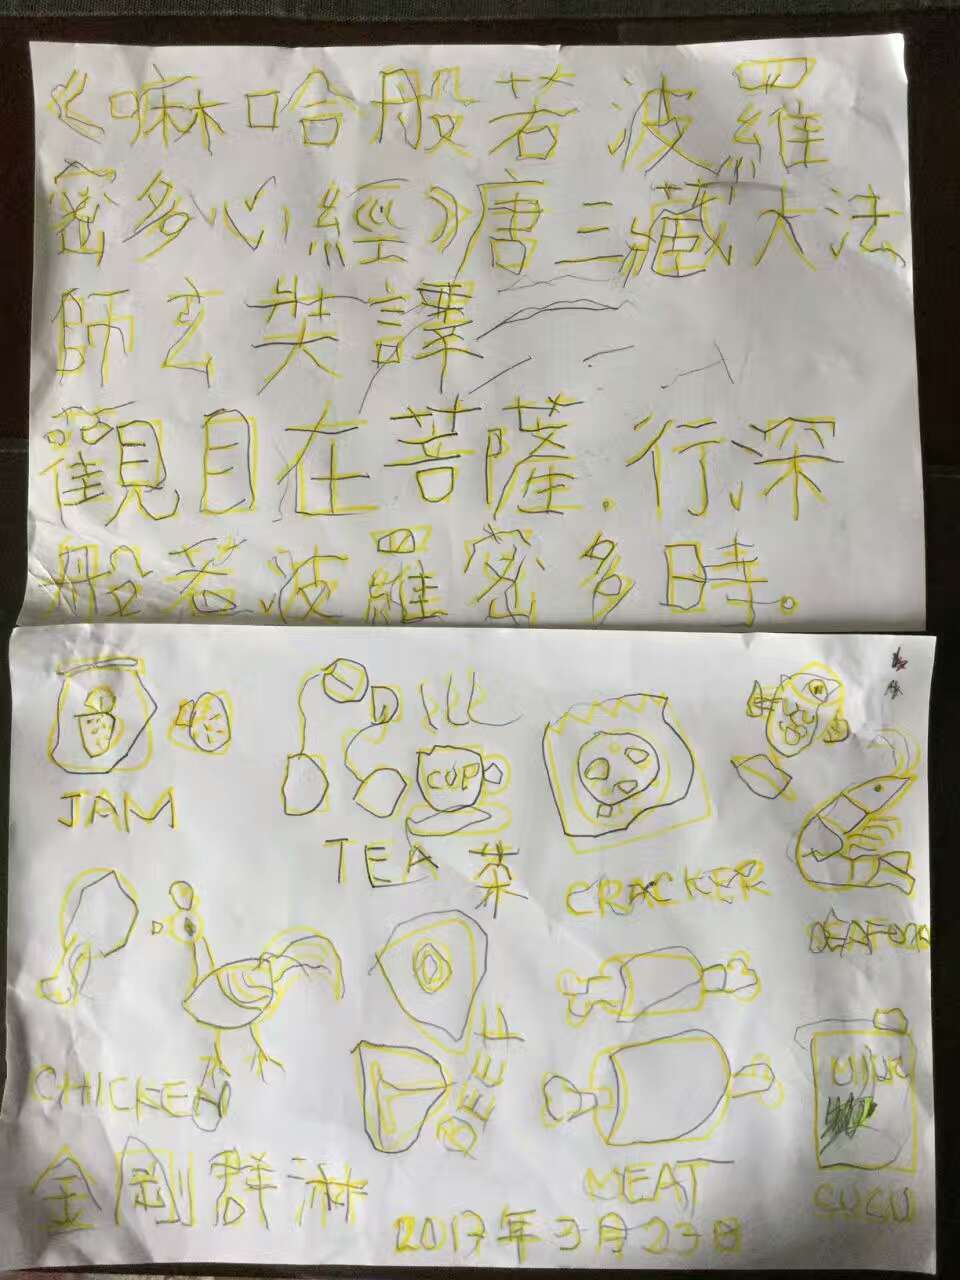 《嘛哈般若波羅
密多心經》唐三藏大法
師玄奘譯
觀自在菩薩.行深
般若波羅密多時。
CUP
JAM
TEA 茶
CRACKER
CHICKEN
BEEF
MILK
MEAT
SUSU
金剛群淋
2017年3月23日